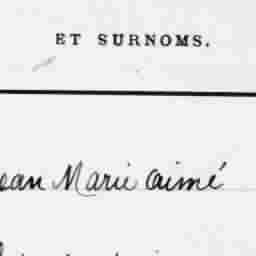 ET SURNOMS.
ean Marie Aimé